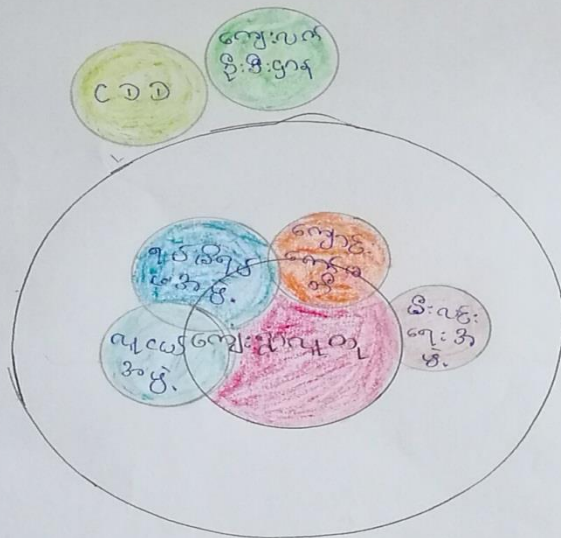 CDD
ကျေးလက်
ဦးစီးဌာန
ရပ်မိရပ်
ဖအဖွဲ့
ကျောင်း
ကော်မ
တီ
လူငယ်
အဖွဲ့
ကျေးရွာလူထု
မီးလင်း
ရေးအ
ဖွဲ့